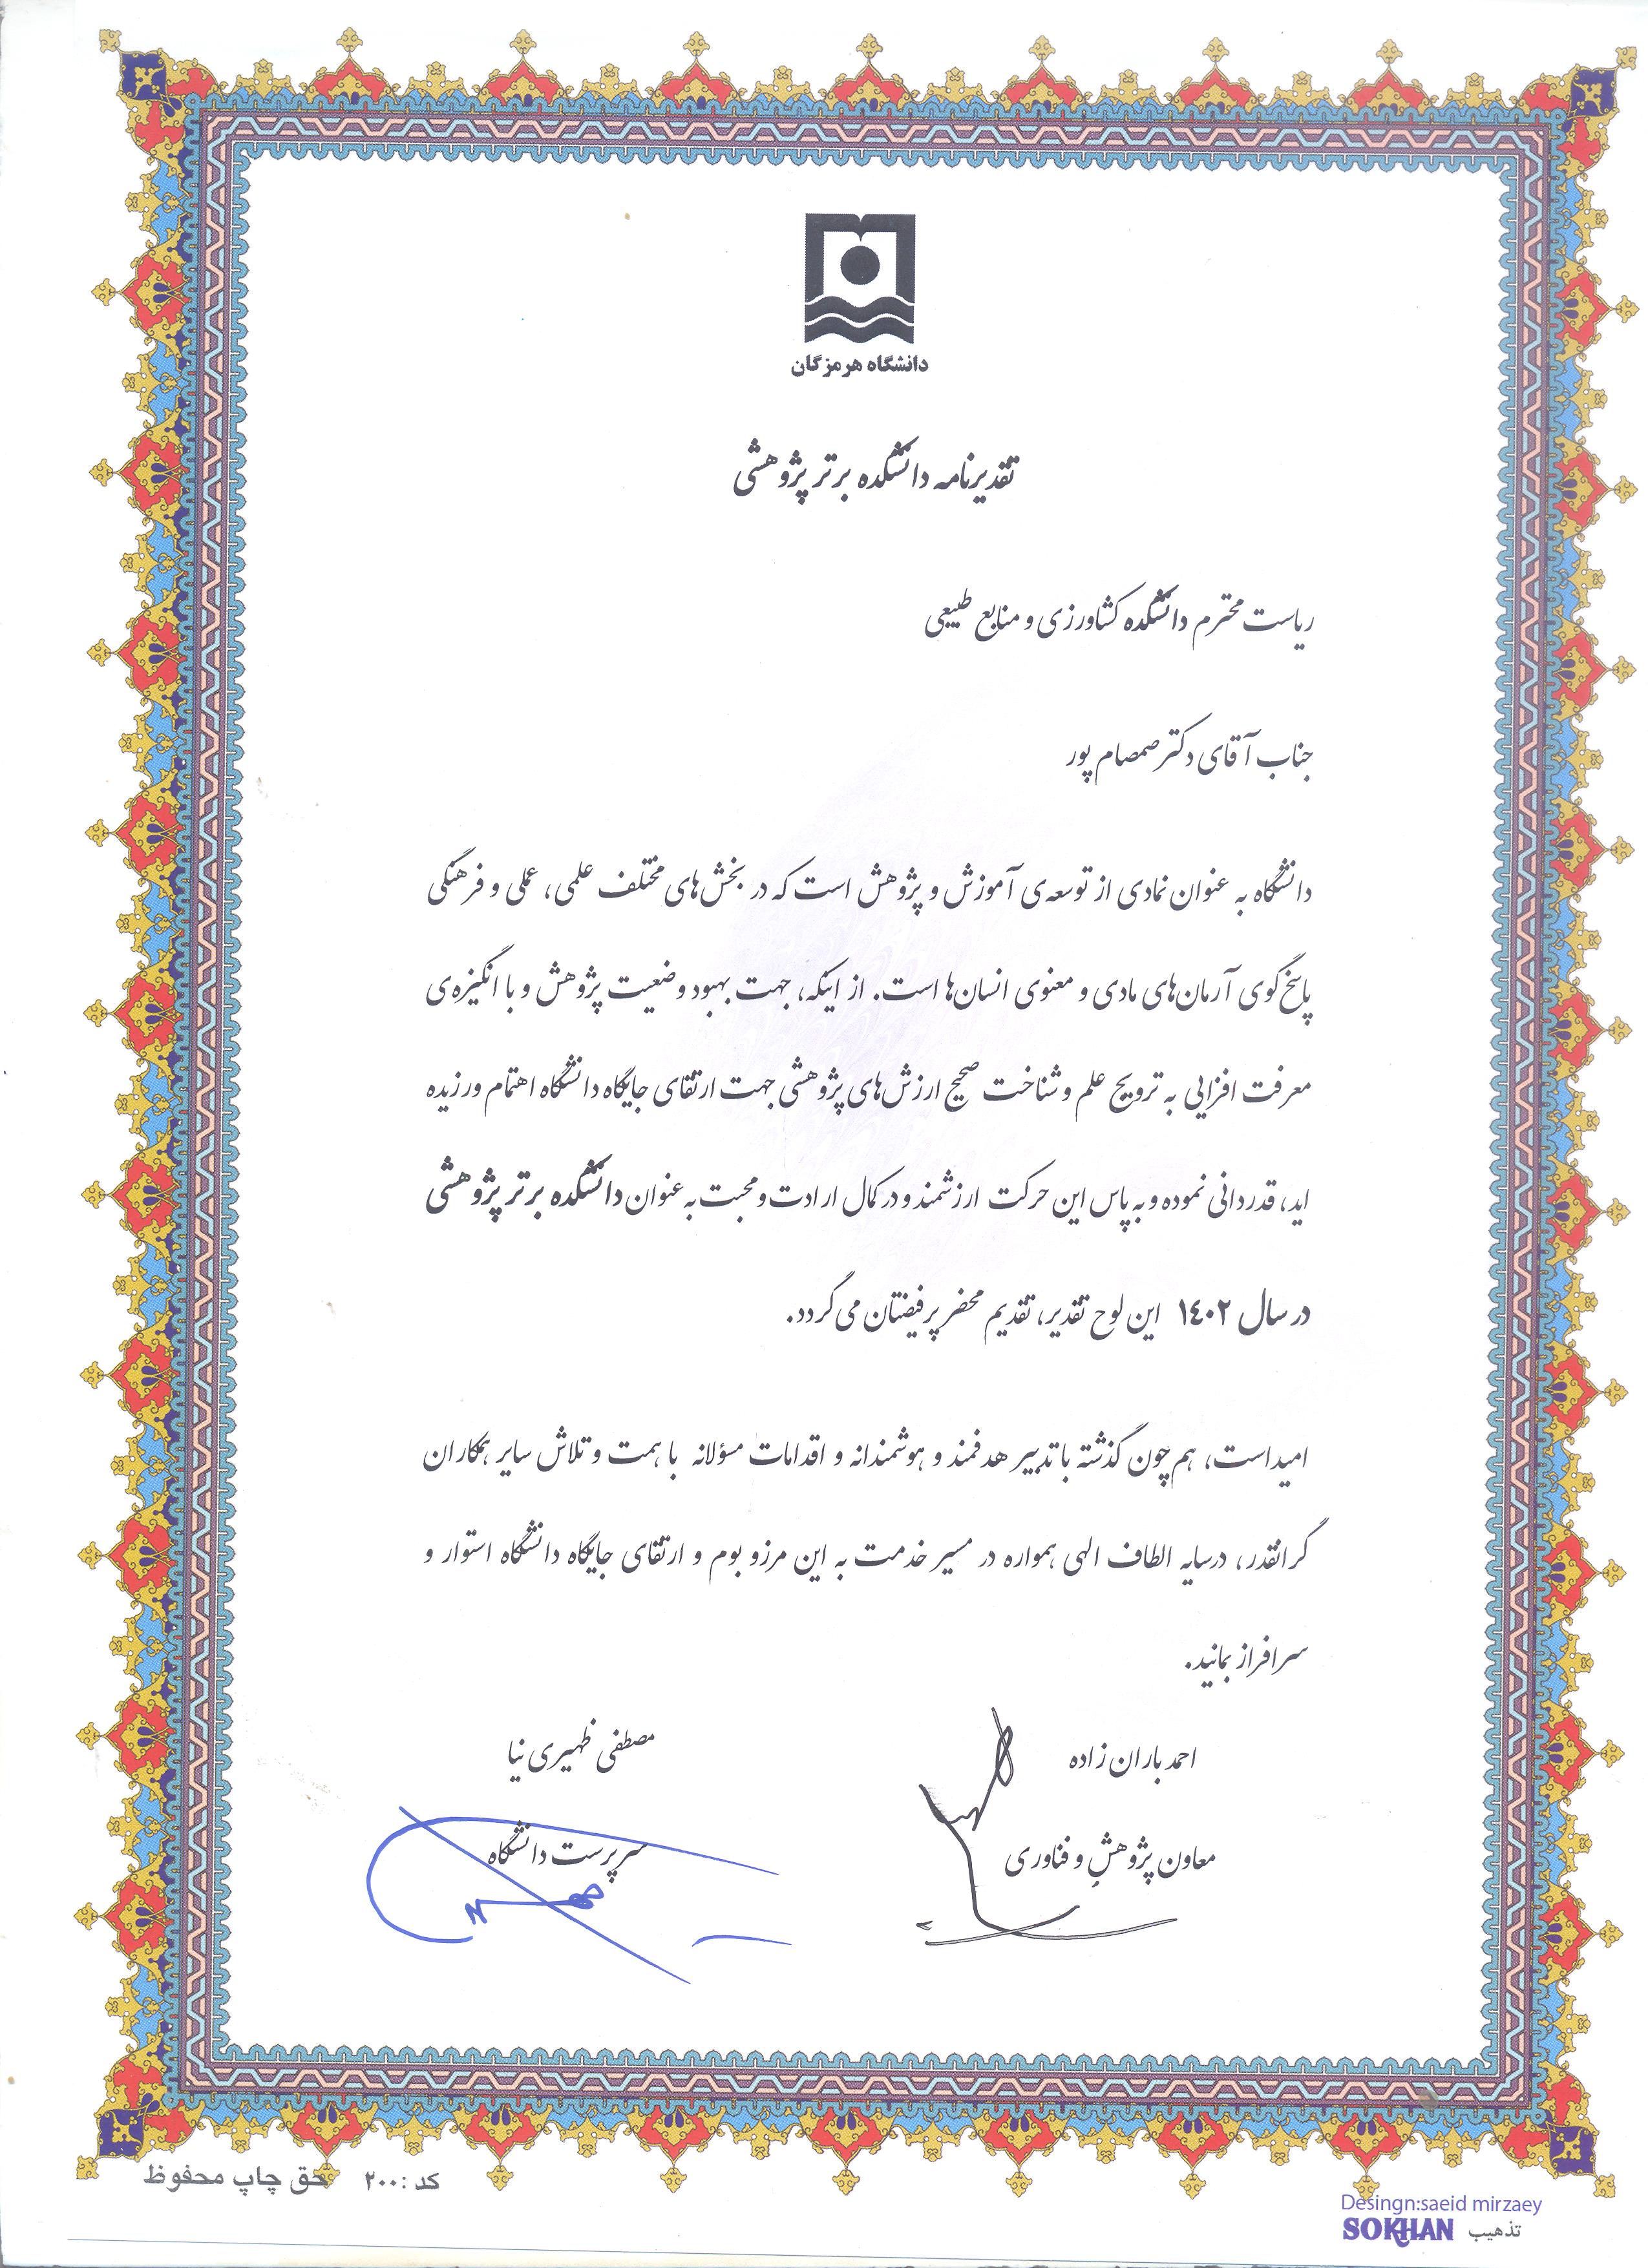 دانشگاه هرمزگان
تقدیرنامه دانشکده برتر پژوهشی
ریاست محترم دانشکده کشاورزی و منابع طبیعی
جناب آقای دکتر صمصام پور
دانشگاه به عنوان نمادی از توسعه‌ی آموزش و پژوهش است که در بخش‌های مختلف علمی، عملی و فرهنگی
پاسخ‌گوی آرمان‌های مادی و معنوی انسان‌ها است. از اینکه، جهت بهبود وضعیت پژوهش و با انگیزه‌ی
معرفت افزایی به ترویج علم و شناخت صحیح ارزش‌های پژوهشی جهت ارتقای جایگاه دانشگاه اهتمام ورزیده
اید، قدردانی نموده و به پاس این حرکت ارزشمند و در کمال ارادت و محبت به عنوان دانشکده برتر پژوهشی
در سال ۱۴۰۲ این لوح تقدیر، تقدیم محضر پرفیضتان می گردد.
امید است، هم چون گذشته با تدبیر هدفمند و هوشمندانه و اقدامات مسؤلانه با همت و تلاش سایر همکاران
گرانقدر، در سایه الطاف الهی همواره در مسیر خدمت به این مرز و بوم و ارتقای جایگاه دانشگاه استوار و
سرافراز بمانید.
احمد باران زاده
معاون پژوهش و فناوری
مصطفی ظهیری نیا
سرپرست دانشگاه
کد : ۲۰۰ حق چاپ محفوظ
Desingn:saeid mirzaey
تذهیب SOKHAN